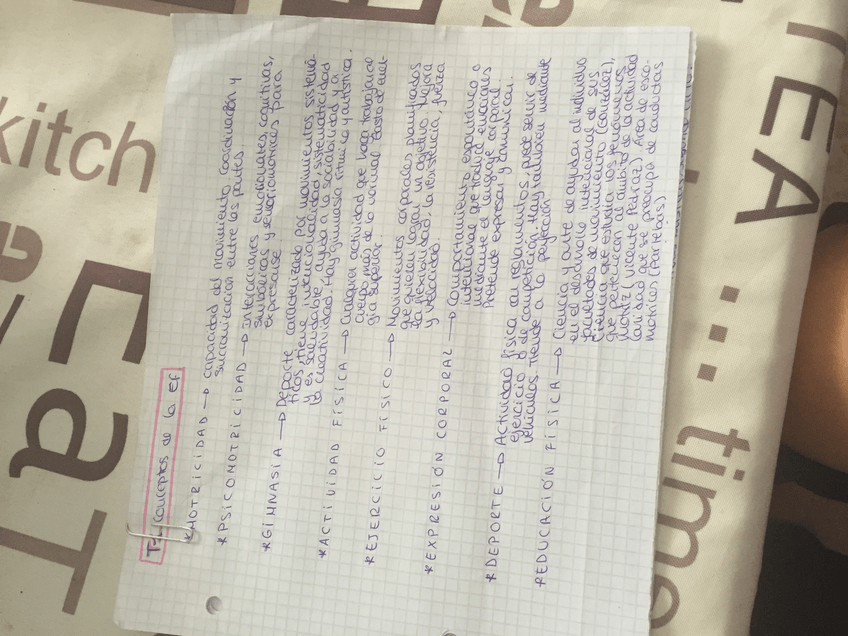 T-1. Conceptos de la EF
*MOTRICIDAD → capacidad del movimiento coordinación y
sincronización entre las partes.
*PSICOMOTRICIDAD → Interacciones emocionales, cognitivas,
simbólicas y sensoriomotrices para
expresarse
*GIMNASIA → Deporte caracterizado por movimientos sistemá-
ticos, tiene intencionalidad, sistematicidad
y es saludable, ayuda a la sociabilidad a
la creatividad. Hay gimnasia rítmica y artística.
*ACTIVIDAD FÍSICA → Cualquier actividad que haga trabajar al
cuerpo más de lo normal. Gasto de ener-
gía superior.
*EJERCICIO FÍSICO → Movimientos corporales planificados
que quieren lograr un objetivo. Mejora
la flexibilidad, la resistencia, fuerza
y velocidad.
*EXPRESIÓN CORPORAL → Comportamiento espontáneo o
intencional que tramite emociones
mediante el lenguaje corporal.
Pretende expresar y comunicar.
*DEPORTE → Actividad física con reglamentos, puede servir de
ejercicio o de competición. Hay también mediante
vehículos. Tiende a la perfección
*EDUCACIÓN FÍSICA → Ciencia y arte de ayudar al individuo
en el desarrollo intencional de sus
facultades de movimiento (González),
Ciencia que estudia los fenómenos
que pertenezcan al ámbito de la actividad
motriz (Vicente Pedraz) Área de esco-
laridad que se preocupa de conductas
motrices (Parlebas)
kitch
ea
EaT
TEA
...
time